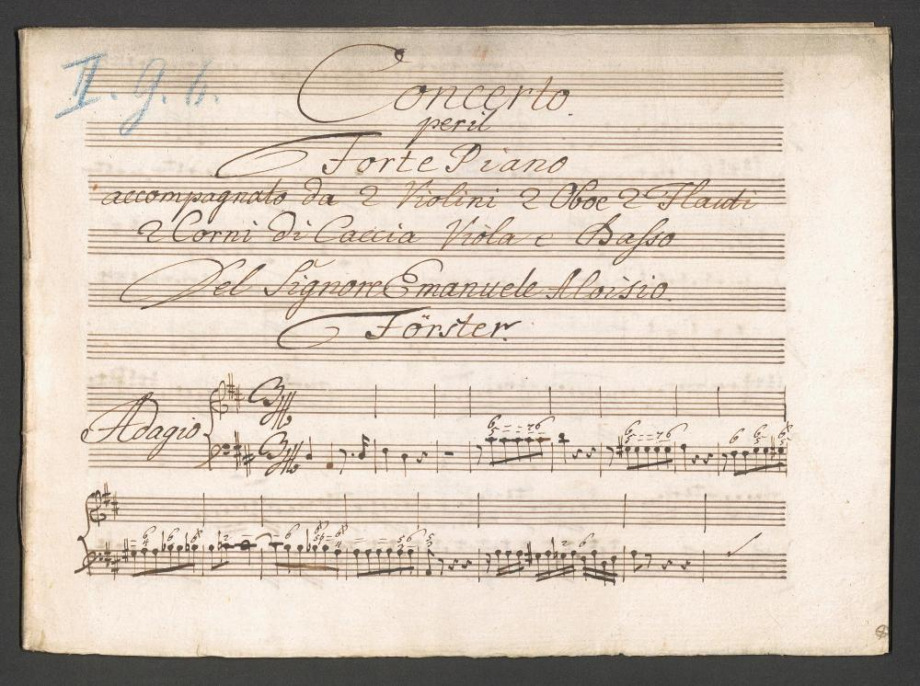 II. g. 6.
Concerto
per il
Forte Piano
accompagnato da 2 Violini 2 Oboe 2 Flauti
2 Corni di Caccia Viola e Basso
Del Signore Emanuele Aloisio.
Förster.
Adagio